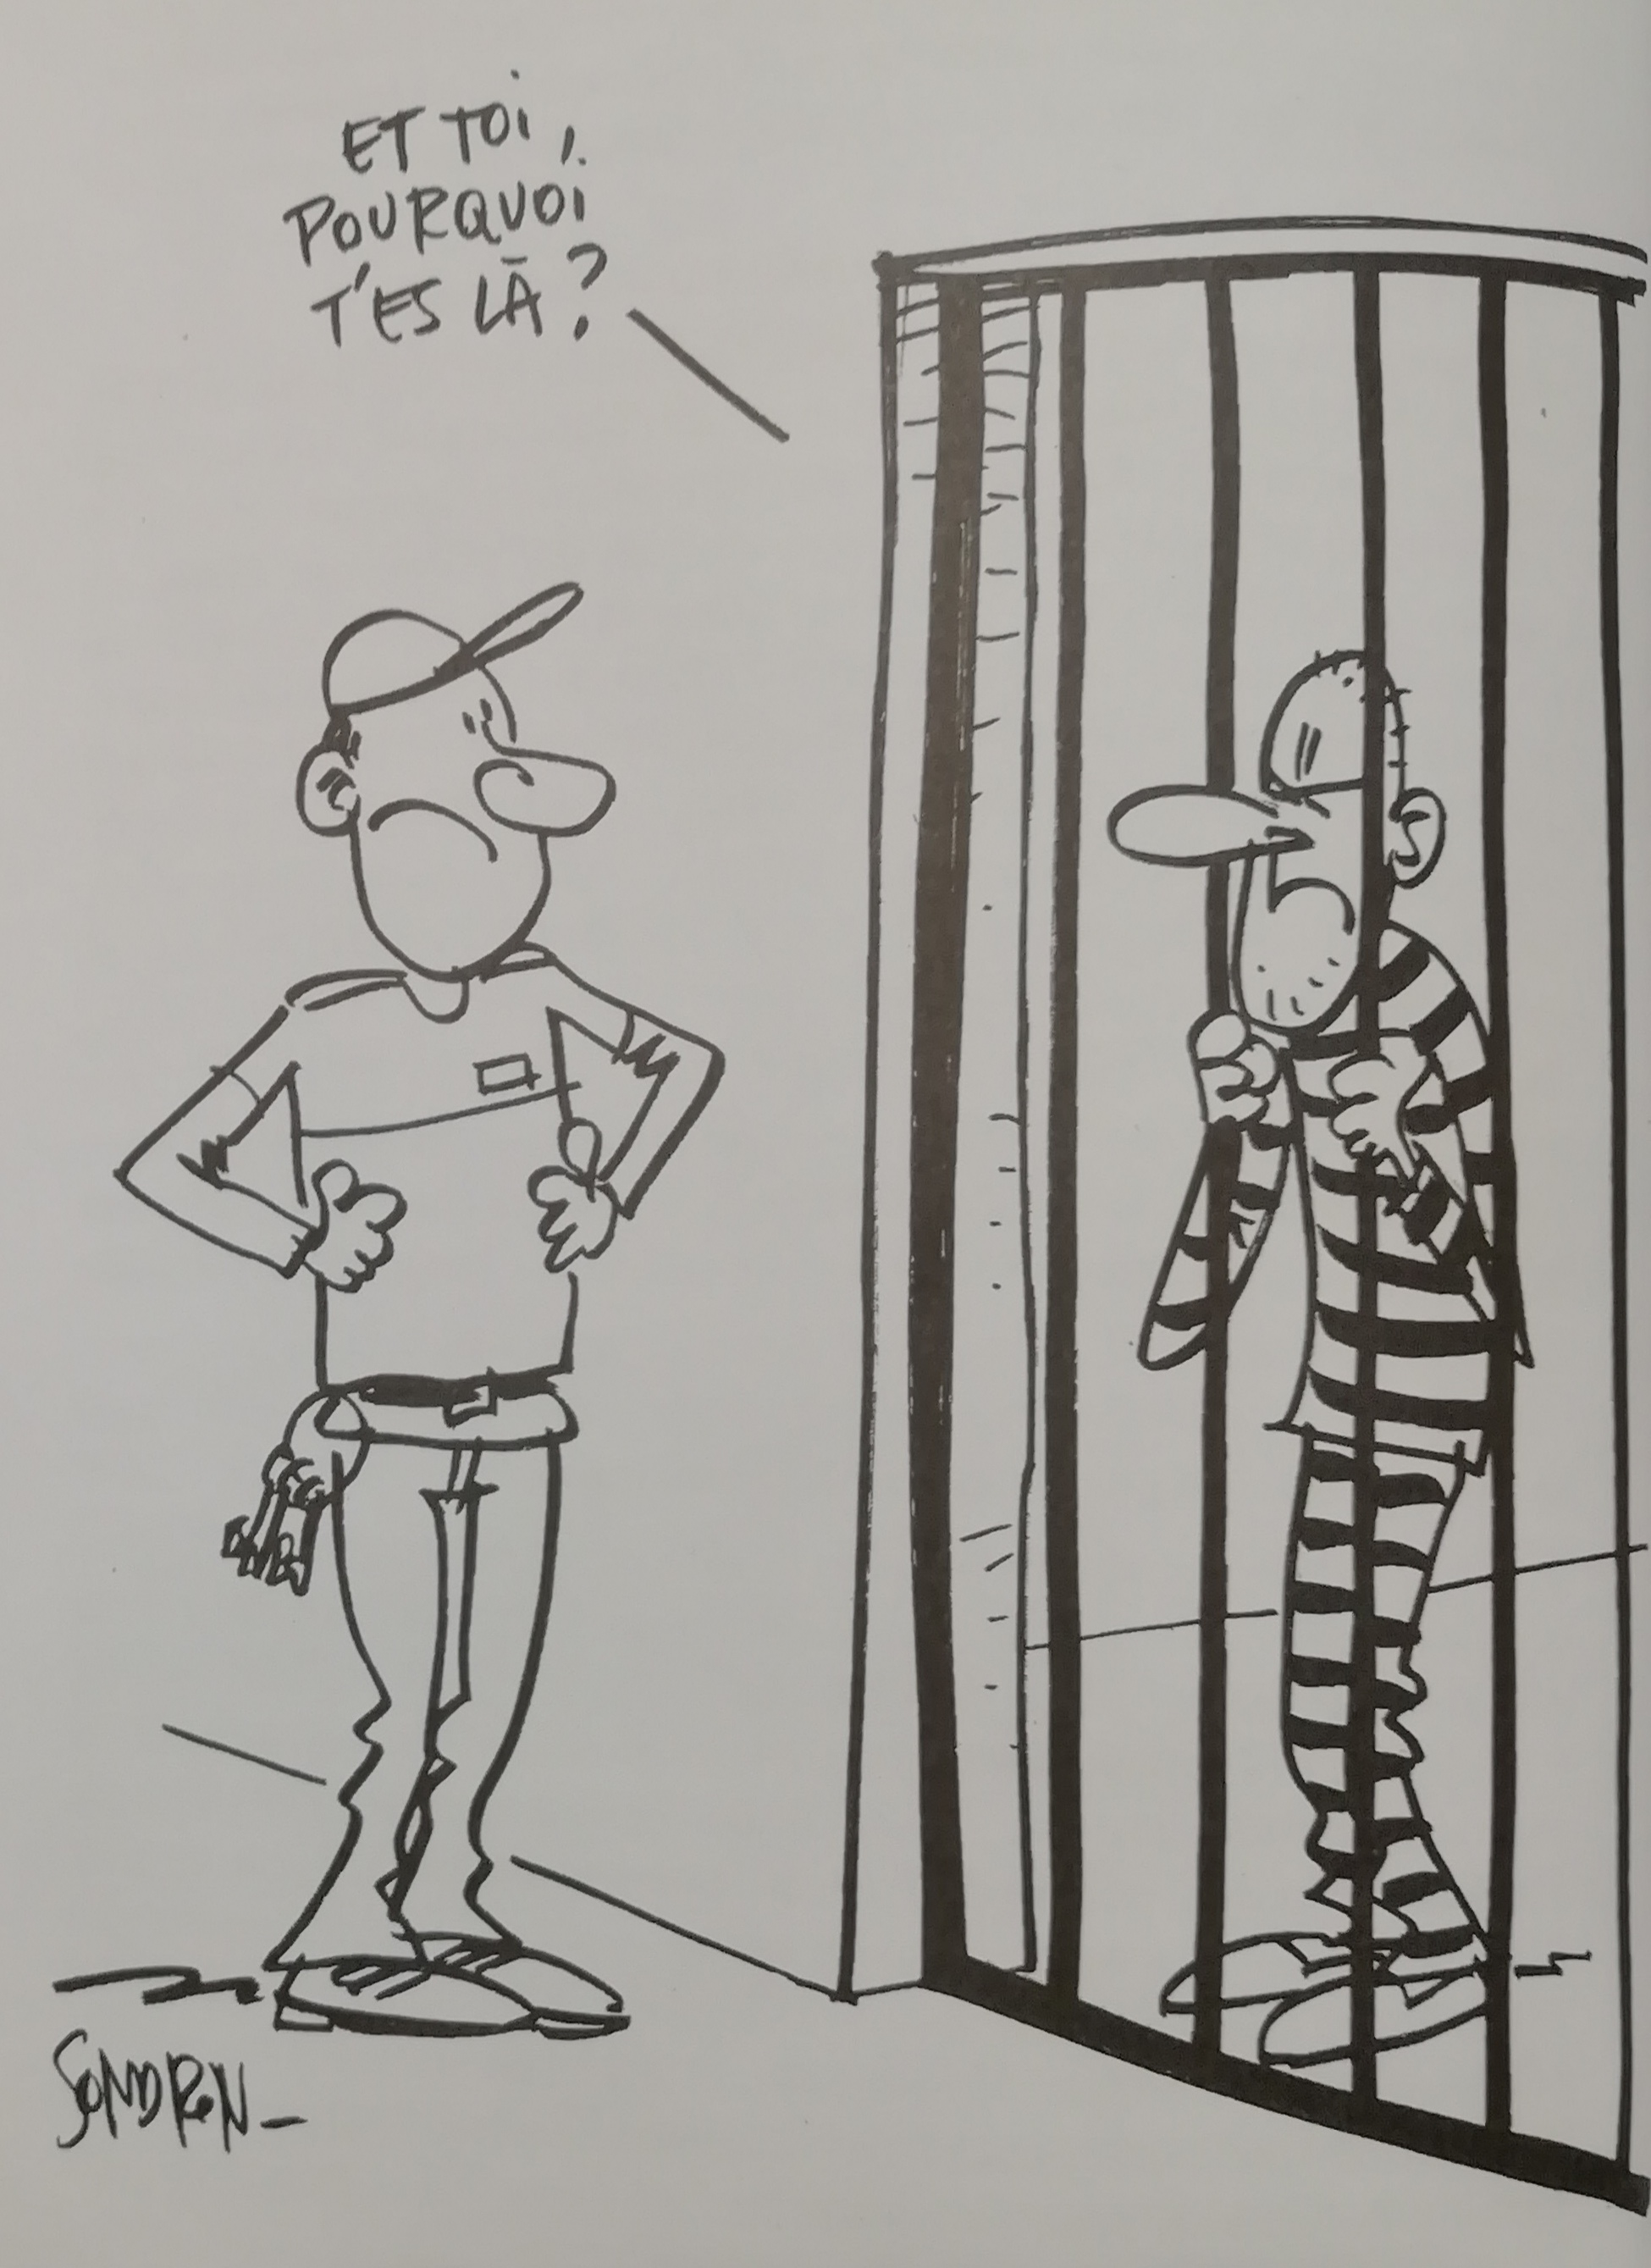 ET TOI,
POURQUOI
T'ES LÀ?
SONDRON